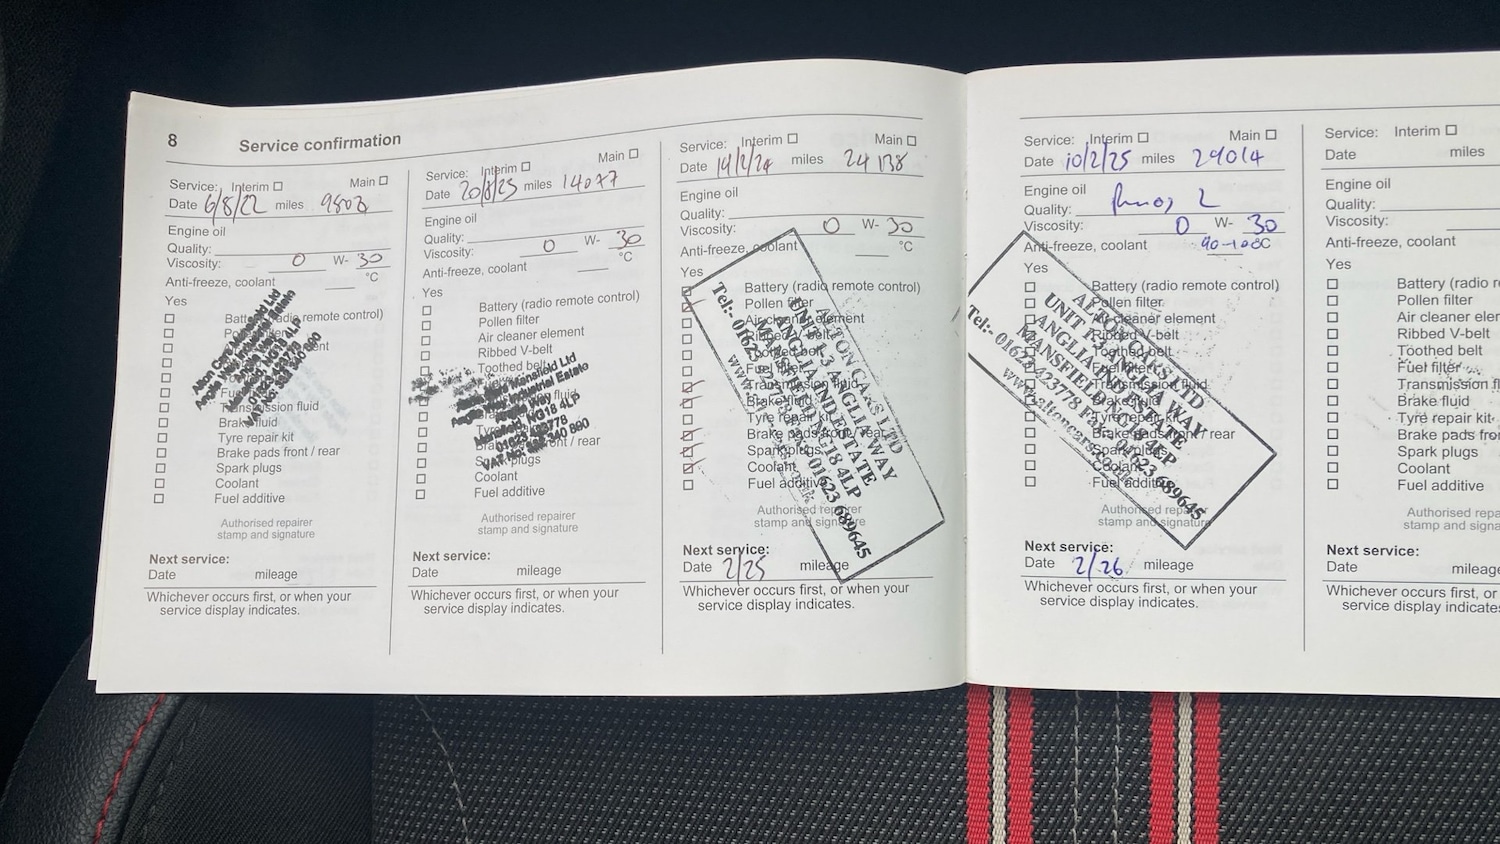 8 Service confirmation
Service: Interim ☐ Main ☐
Date 6/8/22 miles 9808
Engine oil
Quality:
Viscosity: 0 W- 30
Anti-freeze, coolant °C
Yes
☐ Battery (radio remote control)
☐
☐
☐
☐
☐
☐ Transmission fluid
☐ Brake fluid
☐ Tyre repair kit
☐ Brake pads front / rear
☐ Spark plugs
☐ Coolant
☐ Fuel additive
Alton Cars Mansfield Ltd
Anglia Way Industrial Estate
Mansfield NG18 4LP
01623 423778
Authorised repairer
stamp and signature
Next service:
Date mileage
Whichever occurs first, or when your
service display indicates.
Service: Interim ☐ Main ☐
Date 20/8/23 miles 14077
Engine oil
Quality:
Viscosity: 0 W- 30
Anti-freeze, coolant °C
Yes
☐ Battery (radio remote control)
☐ Pollen filter
☐ Air cleaner element
☐ Ribbed V-belt
☐ Toothed belt
☐ Spark plugs
☐ Coolant
☐ Fuel additive
Mansfield Ltd
Industrial Estate
Mansfield NG18 4LP
01623 423778
Authorised repairer
stamp and signature
Next service:
Date mileage
Whichever occurs first, or when your
service display indicates.
Service: Interim ☐ Main ☐
Date 14/2/24 miles 24138
Engine oil
Quality:
Viscosity: 0 W- 30
Anti-freeze, coolant °C
Yes
Battery (radio remote control)
Pollen filter
Air cleaner element
Ribbed V-belt
Toothed belt
Fuel filter
Transmission fluid
Brake fluid
Tyre repair kit
Brake pads front / rear
Spark plugs
Coolant
Fuel additive
ALTON CARS LTD
UNIT 1-3 ANGLIA WAY
ANGLIA IND ESTATE
MANSFIELD NG18 4LP
Tel:- 01623 423778 Fax: 01623 689645
Authorised repairer
stamp and signature
Next service:
Date 2/25 mileage
Whichever occurs first, or when your
service display indicates.
Service: Interim ☐ Main ☐
Date 10/2/25 miles 29014
Engine oil
Quality:
Viscosity: 0 W- 30
Anti-freeze, coolant °C
Yes
☐ Battery (radio remote control)
☐ Pollen filter
☐ Air cleaner element
☐ Ribbed V-belt
☐ Toothed belt
☐ Fuel filter
☐ Transmission fluid
☐ Brake fluid
☐ Tyre repair kit
☐ Brake pads front / rear
☐ Spark plugs
☐ Coolant
☐ Fuel additive
ALTON CARS LTD
UNIT 1-3 ANGLIA WAY
ANGLIA IND ESTATE
MANSFIELD NG18 4LP
Tel:- 01623 423778 Fax: 01623 689645
www.altoncars.com
Authorised repairer
stamp and signature
Next service:
Date 2/26 mileage
Whichever occurs first, or when your
service display indicates.
Service: Interim ☐
Date miles
Engine oil
Quality:
Viscosity:
Anti-freeze, coolant
Yes
☐ Battery (radio remote
☐ Pollen filter
☐ Air cleaner eler
☐ Ribbed V-belt
☐ Toothed belt
☐ Fuel filter
☐ Transmission fluid
☐ Brake fluid
☐ Tyre repair kit
☐ Brake pads fro
☐ Spark plugs
☐ Coolant
☐ Fuel additive
Authorised rep
stamp and signa
Next service:
Date mileage
Whichever occurs first, or
service display indicates